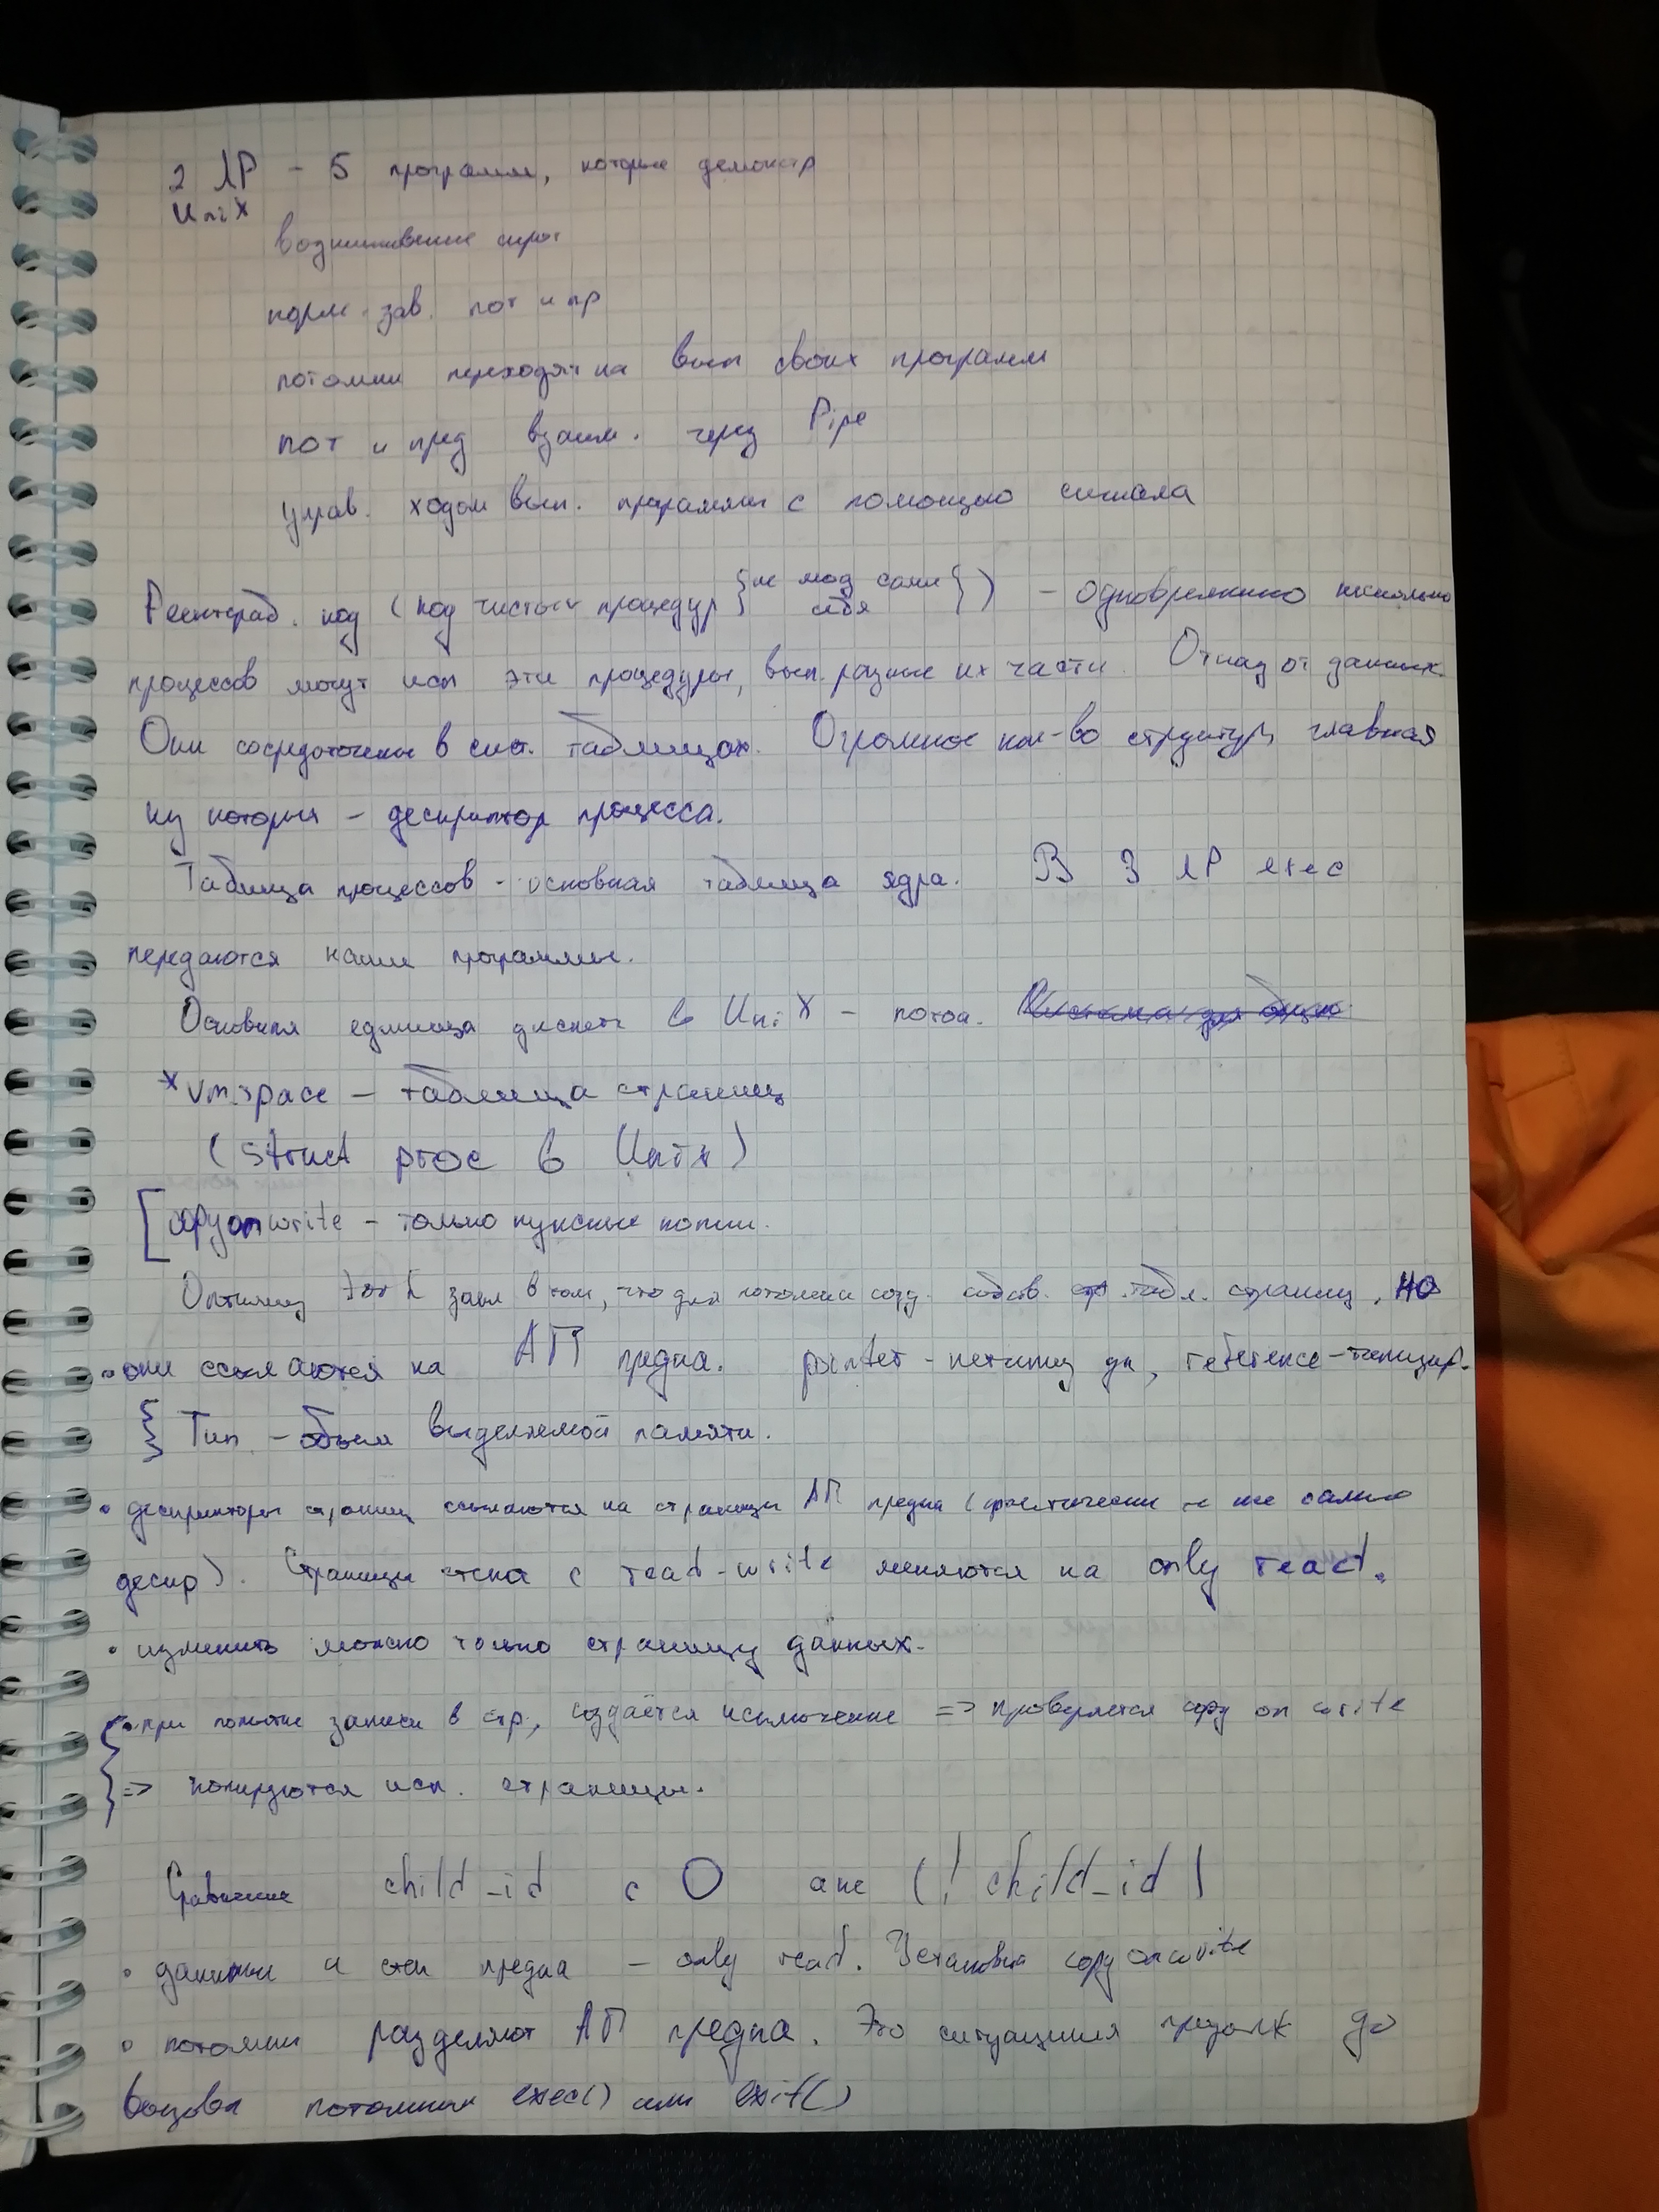 2 ЛР - 5 программ, которые демонстр
Unix
возникновение сирот
норм. зав. пот и пр
потомки переходят на вып своих программ
пот и пред взаим. через Pipe
управ. ходом вып. программы с помощью сигнала
Реентераб. код (код чистых процедур {не мод сами себя}) - одновременно несколько
процессов могут исп эти процедуры, вып. разные их части. Отказ от данных.
Они сосредоточены в сист. таблицах. Огромное кол-во структур, главная
из которых - дескриптор процесса.
Таблица процессов - основная таблица ядра. В 3 ЛР exec
передаются наши программы.
Основная единица диспетч в Unix - поток.
*vmspace - таблица страниц
(struct proc в Unix)
[copy on write - только нужные копии.
Оптимиз закл в том, что для потомка созд. собств. табл. страниц, но
• они ссылаются на АП предка. pointer - нетипиз ук, reference - типизир.
} Тип - объем выделяемой памяти.
• дескрипторы страниц ссылаются на страницы АП предка (фактически те же самые
дескр). Страницы стека с read-write меняются на only read.
• изменить можно только страницу данных.
{ • при попытке записи в стр, создаётся исключение => проверяется copy on write
=> копируются исп. страницы.
Сравнение child_id с 0 или (! child_id)
• данные и стек предка - only read. Установка copy on write
• потомки разделяют АП предка. Это ситуация продолж до
вызова потомком exec() или exit()